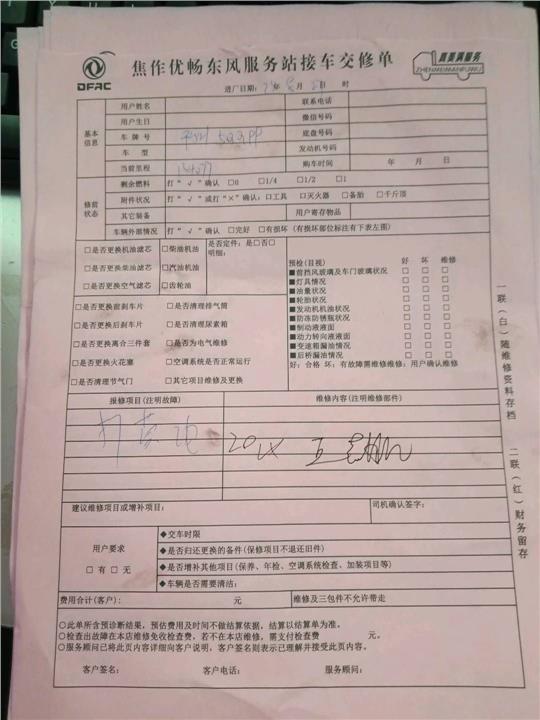 DFAC
焦作优畅东风服务站接车交修单
真美满服务
ZHENMEIMANFUWU
进厂日期: 年 月 日 时
基本信息
用户姓名 联系电话
用户生日 微信号码
车牌号 底盘号码
车型 发动机号码
当前里程 购车时间 年 月 日
修前状态
剩余燃料 打“√”确认 □0 □1/4 □1/2 □1
附件状况 打“√”或打“×”确认: □工具 □灭火器 □备胎 □千斤顶
其它装备 用户寄存物品
车辆外部情况 打“√”确认 □完好 □有损坏 (有损坏部位标注有下表左图)
□是否更换机油滤芯 □柴油机油 是否定件: 是□否□
□是否更换柴油滤芯 □汽油机油 明细:
□是否更换空气滤芯 □齿轮油
□是否更换前刹车片 □是否清理排气筒
□是否更换后刹车片 □是否清理尿素箱
□是否更换离合三件套 □是否为电气维修
□是否更换火花塞 □空调系统是否正常运行
□是否清理节气门 □其它项目维修及更换
预检(目视) 好 坏 维修
■前挡风玻璃及车门玻璃状况 □ □ □
■灯具情况 □ □ □
■油量状况 □ □ □
■轮胎状况 □ □ □
■发动机机油状况 □ □ □
■防冻防锈瓶状况 □ □ □
■制动液液面 □ □ □
■动力转向液液面 □ □ □
■变速箱漏油情况 □ □ □
■后桥漏油情况 □ □ □
好: 合格 坏: 有故障需维修维修: 用户确认维修
报修项目(注明故障) 维修内容(注明维修部件)
建议维修项目或增补项目: 司机确认签字:
用户要求
□有 □无
◆交车时限
◆是否归还更换的备件(保修项目不退还旧件)
◆是否增补其他项目(保养、年检、空调系统检查、加装项目等)
◆车辆是否需要清洁:
费用合计(客户): 元 维修及三包件不允许带走
○此单所含预诊断结果, 预估费用及时间不做结算依据, 结算以结算单为准。
○检查出故障在本店维修免收检查费, 若不在本店维修, 需支付检查费 元。
○服务顾问已将此页内容详细向客户说明, 客户签名则表示已理解并接受此页内容。
客户签名: 客户电话: 服务顾问:
一联(白)随维修资料存档
二联(红)财务留存